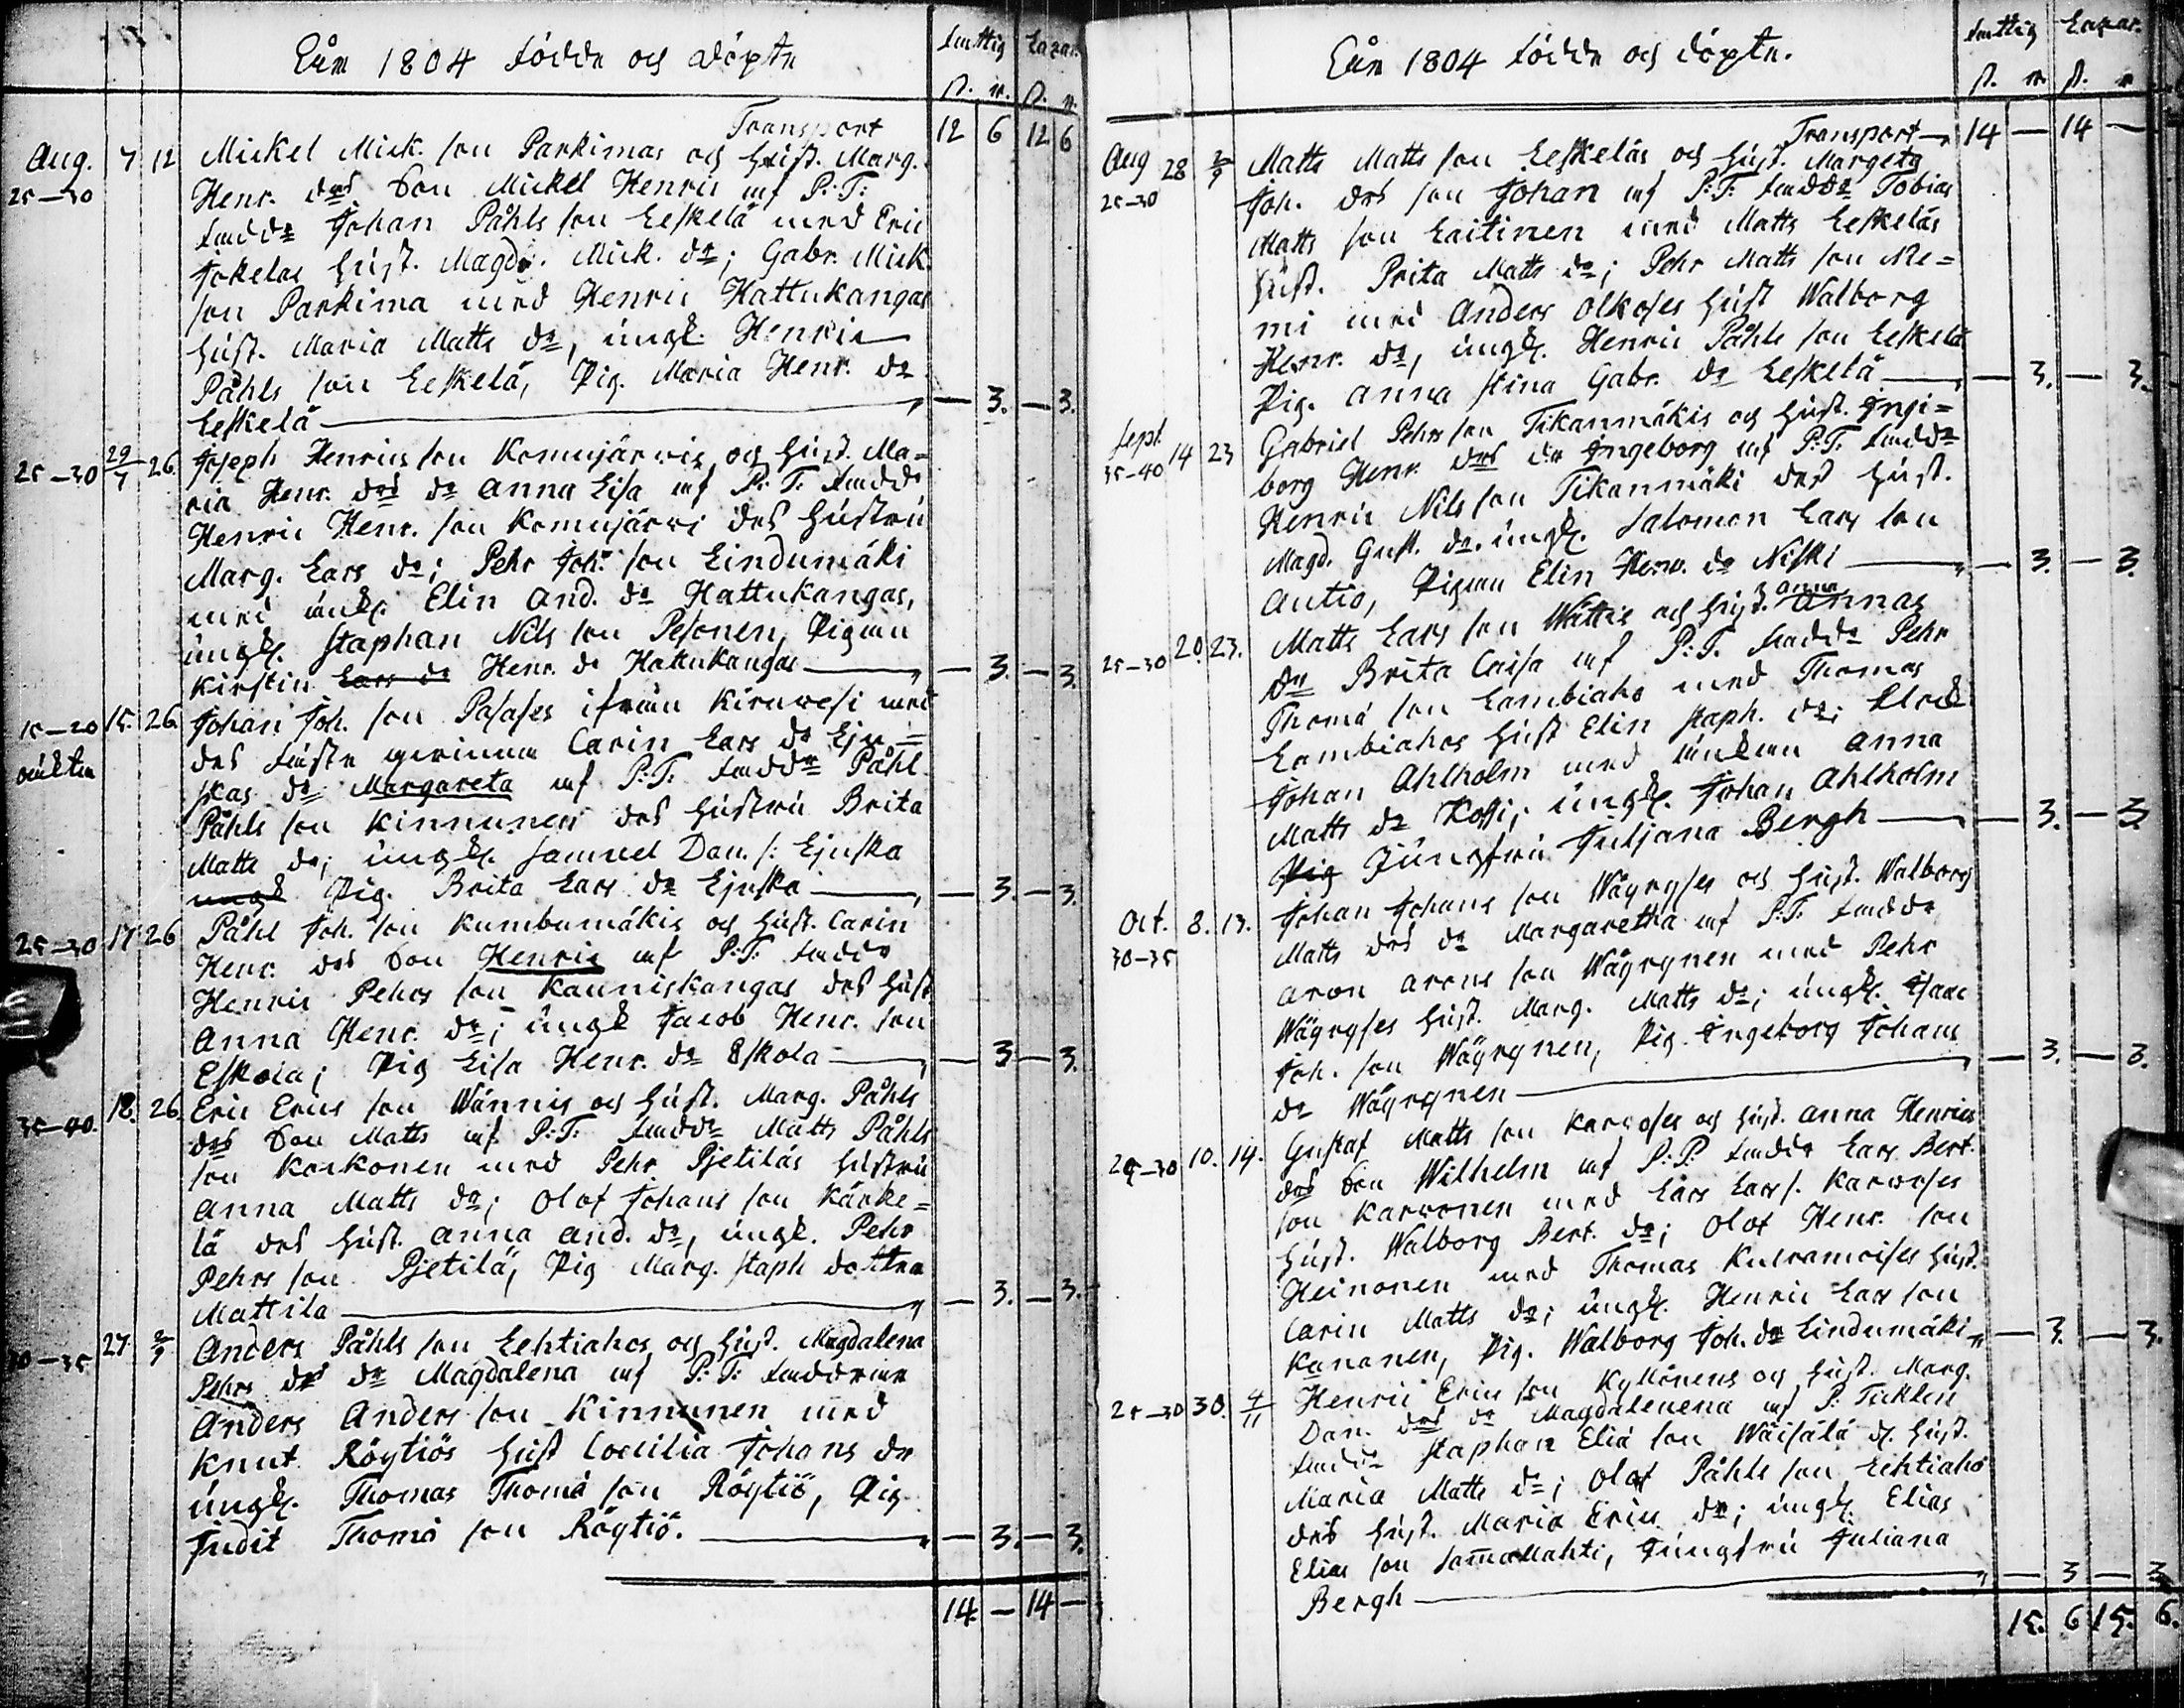 Åhr 1804 födde och döpte
fattig Lazar.
ß. r. ß. r.
Transport 12 6 12 6
Aug. 7 12 Mickel Mick. son Parkimas och hust. Marg.
25-30 Henr. drs son Mickel Henric af P:T:
fadd: Johan Påhls son Leskelä med Eric
Jokelas hust. Magd. Mick. dr; Gabr. Mick.
son Parkima med Henric Hattukangas
hust. Maria Matts dr, ungk. Henric
Påhls son Leskelä, Pig. Maria Henr. dr
Leskelä — 3. — 3.
25-30 29/7 26. Joseph Henrics son Komujärvis och hust. Ma=
ria Henr. drs dr Anna Lisa af P:T: fadd:
Henric Henr. son Komujärvi des hustru
Marg. Lars dr; Pehr Joh. son Lindumäki
med enk. Elin And. dr Hattukangas,
ungk. Staphan Nils son Pesonen, Pigan
Kirstin Lars dr Henr. dr Hattukangas — 3. — 3.
15-20 15. 26. Johan Joh. son Pasases ifrån Kiruvesi med
oäkta des fäste qvinna Carin Lars dr Eju=
skas dr Margareta af P:T: fadd: Påhl
Påhls son Kinnunen des hustru Brita
Matts dr; ungk. Samuel Dan. s: Ejuska
ungk Pig. Brita Lars dr Ejuska — 3. — 3.
25-30 17. 26 Påhl Joh. son Kumbumäkis och hust. Carin
Henr. drs son Henric af P:T: fadd:
Henric Pehrs son Kauniskangas des hust
Anna Henr. dr; ungk Jacob Henr. son
Eskola; Pig Lisa Henr. dr Eskola — 3 — 3.
35-40. 18. 26. Eric Erics son Wännis och hust. Marg. Påhls
drs son Matts af P:T: fadd: Matts Påhls
son Korkonen med Pehr Pjetiläs hustru
Anna Matts dr; Olof Johans son Kärke=
lä des hust. Anna And. dr, ungk. Pehr
Pehrs son Pjetilä, Pig Marg. Staph dotter
Mattila — 3. — 3.
30-35 27. 2/9 Anders Påhls son Lehtiahos och hust. Magdalena
Pehrs drs dr Magdalena af P:T: faddrar
Anders Anders son Kinnunen med
Knut Röytiös hust Coecilia Johans dr
ungk. Thomas Thomä son Röytiö, Pig
Judit Thomä son Röytiö. — 3. — 3.
14 — 14 —
Åhr 1804 födde och döpte.
fattig Lazar.
ß. r. ß. r.
Transport 14 — 14 —
Aug 28 2/9 Matts Matts son Leskeläs och hust. Margeta
25-30 Joh. drs son Johan af P:T: fadd: Tobias
Matts son Laitinen med Matts Leskeläs
hust. Brita Matts dr; Pehr Matts son Nie=
mi med Anders Olkoses hust Walborg
Henr. dr, ungk. Henric Påhls son Leskelä
Pig. Anna Stina Gabr. dr Leskelä — 3. — 3.
Sept. 14 23 Gabriel Pehrs son Tikanmäkis och hust. Inge=
35-40 borg Henr. drs dr Ingeborg af P:T: fadd:
Henric Nils son Tikanmäki des hust.
Magd. Gust. dr. ungk. Salomon Lars son
Autio, Pigan Elin Henr. dr Niski — 3. — 3.
25-30 20. 23. Matts Lars son Wättis och hust. Anna Annas
dr Brita Caisa af P:T. fadd: Pehr
Thomä son Lambiaho med Thomas
Lambiahos hust Elin Staph. dr; Klock
Johan Ahlholm med enkan Anna
Matts dr Kossi; ungk. Johan Ahlholm
Pig Jungfru Juljana Bergh — 3. — 3.
Oct. 8. 13. Johan Johans son Wäyryses och hust. Walborg
30-35 Matts drs dr Margaretha af P:T: fadd:
Aron Arons son Wäyrynen med Pehr
Wäyryses hust. Marg. Matts dr; ungk. Isaac
Joh. son Wäyrynen, Pig. Ingeborg Johans
dr Wäyrynen — 3. — 3.
25-30 10. 14. Gustaf Matts son Karvoses och hust. Anna Henrics
drs son Wilhelm af P:P: fadd: Lars Bert.
son Karvonen med Lars Lars s. Karvoses
hust. Walborg Bert. dr; Olof Henr. son
Heinonen med Thomas Kuivamoises hust.
Carin Matts dr; ungk. Henric Lars son
Kananen, Pig. Walborg Joh. dr Lindumäki — 3. — 3.
25-30 30. 4/11 Henric Erics son Kyllönens och hust. Marg.
Dan. drs dr Magdalenena af P: Ticklen
fadd: Staphan Eliä son Wäisälä ds. hust.
Maria Matts dr; Olof Påhls son Lehtiaho
des hust. Maria Erics dr; ungk. Elias
Elias son Sam̄almahti, Jungfru Juliana
Bergh — 3 — 3.
15. 6 15. 6.